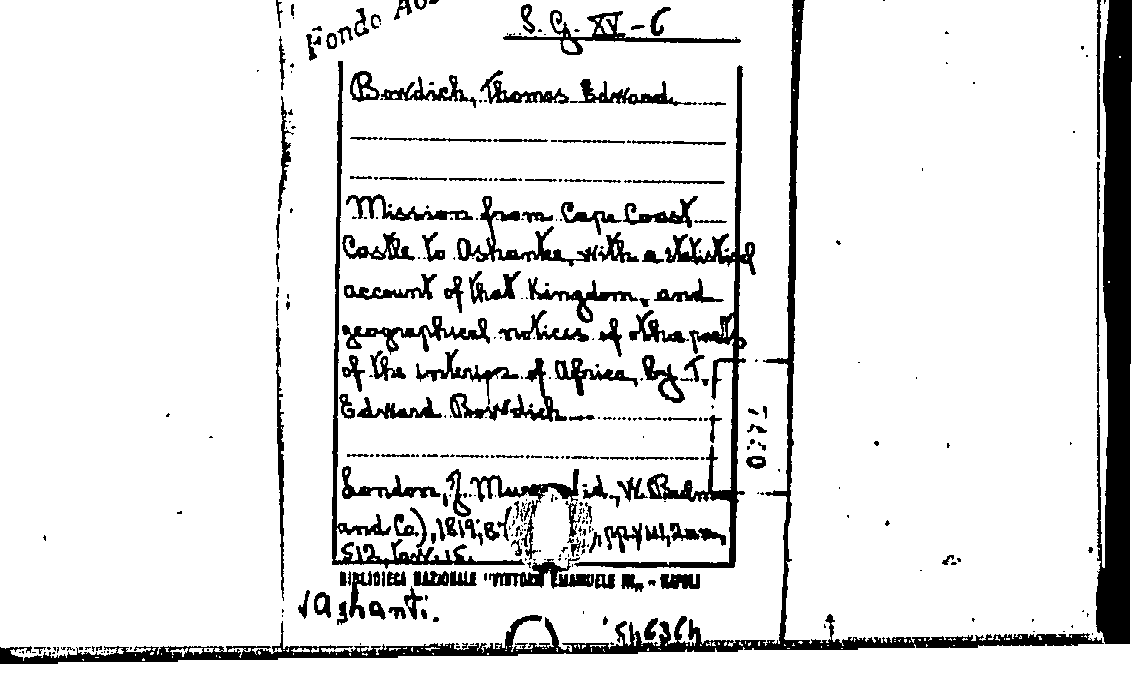 Fondo
S. G. XV-6
Bowdich, Thomas Edward.
Mission from Cape Coast
Castle to Ashantee, with a statistical
account of that Kingdom, and
geographical notices of other parts
of the interior of Africa, by T.
Edward Bowdich
London, J. W. Bulmer
and Co.), 1819, 8°
512, tavv. 15.
BIBLIOTECA NAZIONALE "VITTORIO EMANUELE III" - NAPOLI
√ Ashanti.